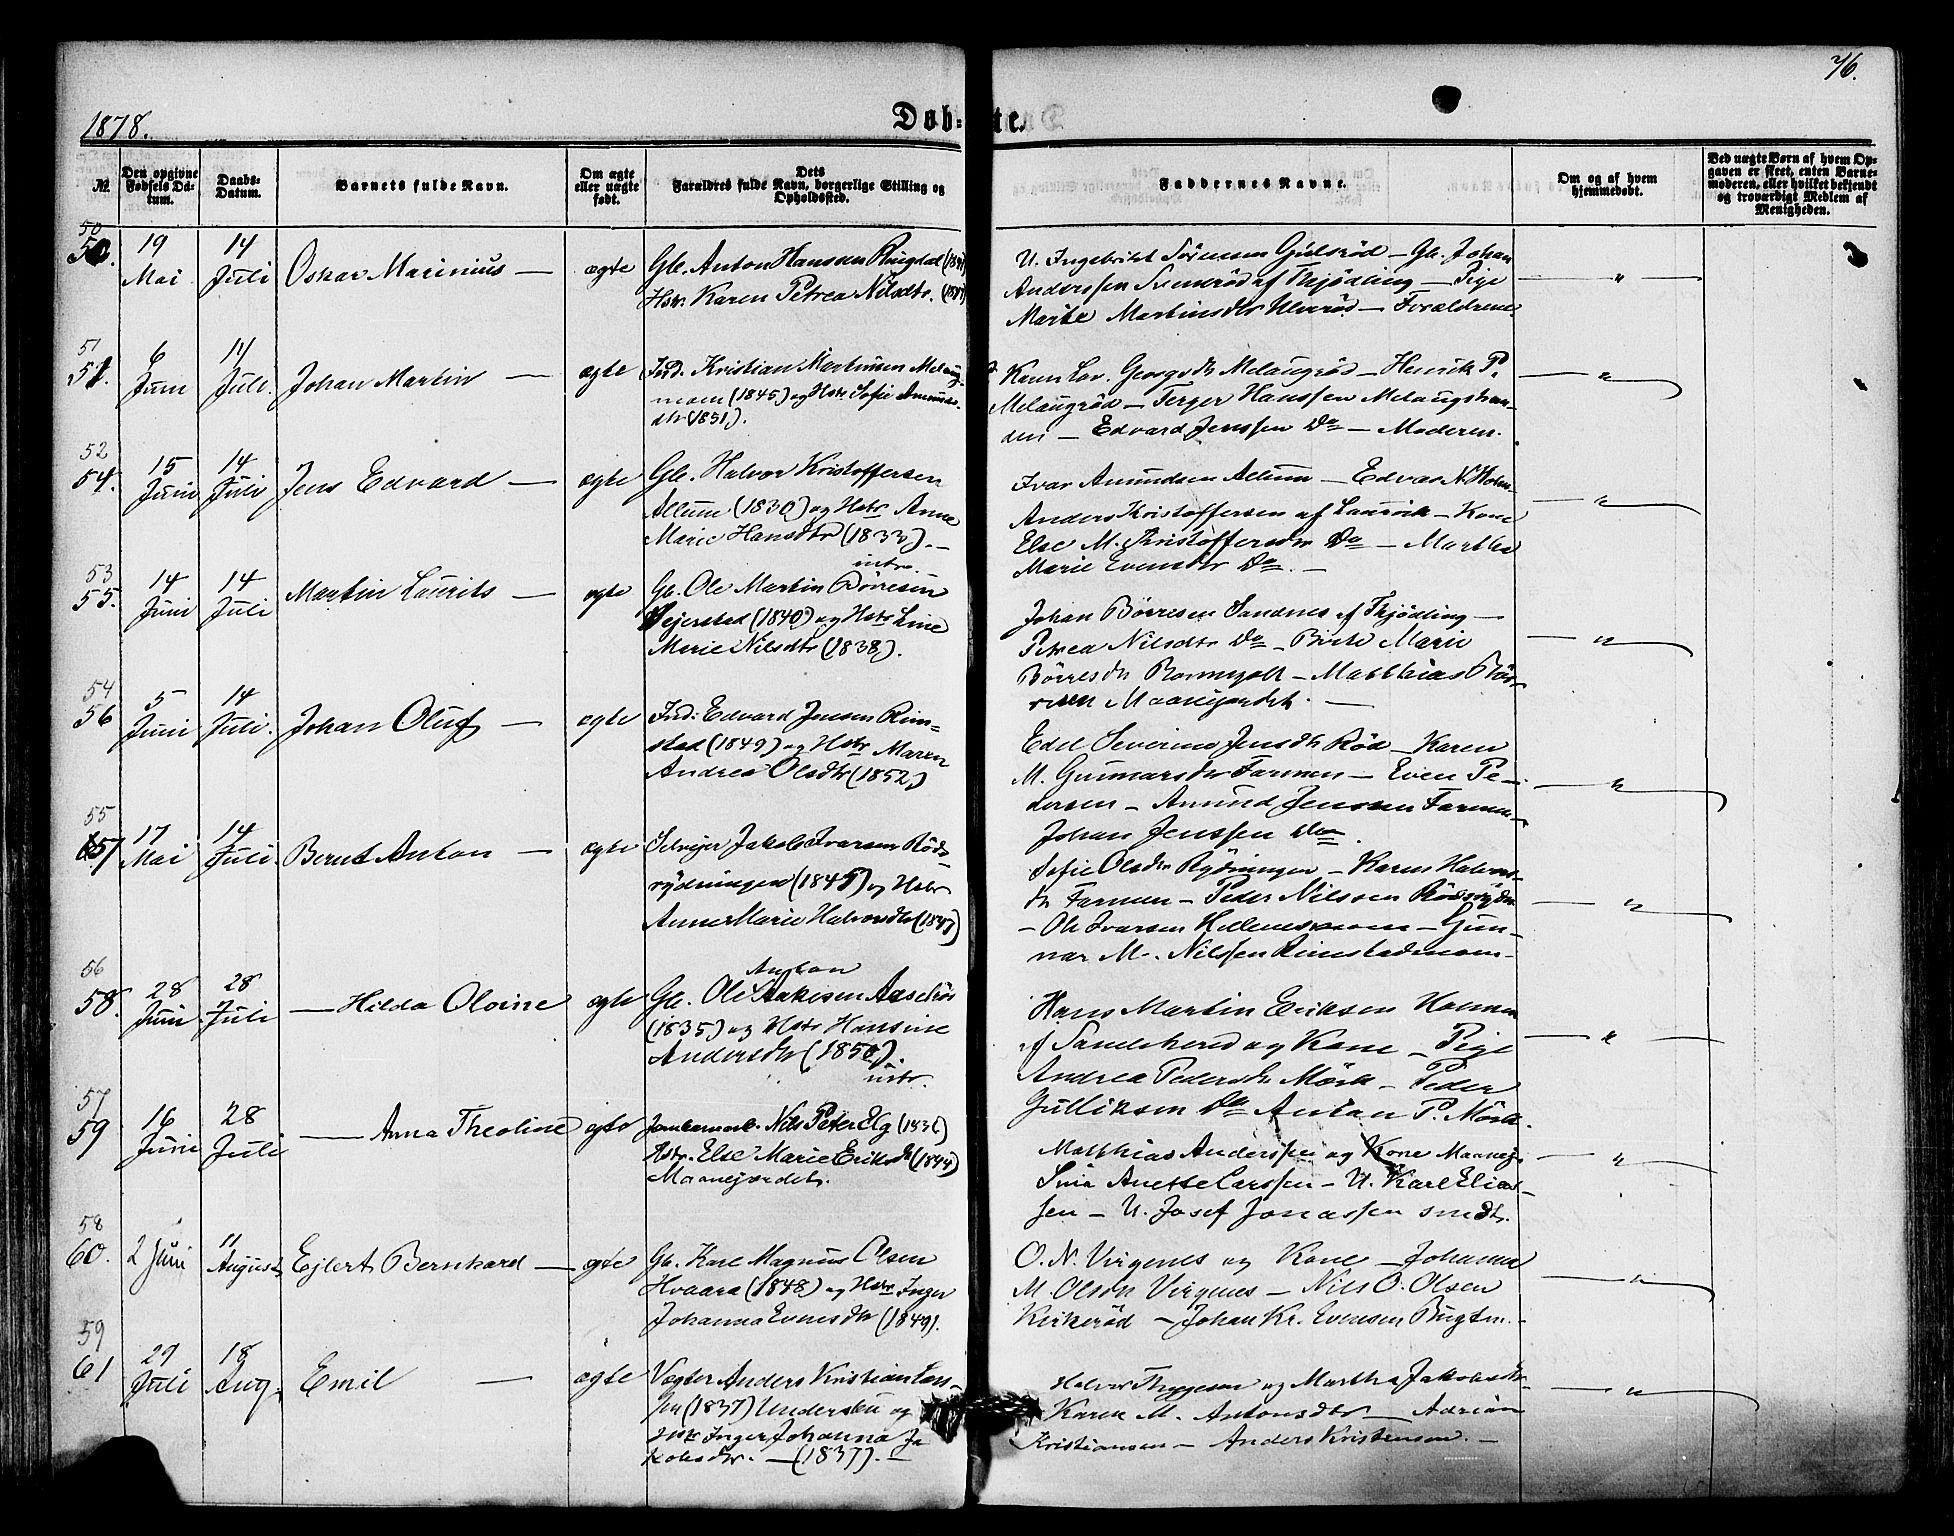 76.
1878.
Døb-te.
No.
Den opgivne Fødsels Datum.
Daabs-Datum.
Barnets fulde Navn.
Om ægte eller uægte født.
Dets Forældres fulde Navn, borgerlige Stilling og Opholdssted.
Faddernes Navne.
Om og af hvem hjemmedøbt.
Ved uægte Børn af hvem Opgaven er skeet, enten Barnemoderen, eller hvilket bekjendt og troværdigt Medlem af Menigheden.
50
19 Mai
14 Juli
Oskar Marinius — ægte
Gb. Anton Hansen Ringdal
Hstr. Karen Petrea Nilsdtr.
U. Ingebrikt Sørensen Gulsrød — Gb. Johan
Anderssen Svensrød af Thjødling — Pige
Marte Martinsdtr Ulverød — Forældrene
51
6 Juni
14 Juli
Johan Martin — ægte
Ind. Kristian Martinsen Melaug-
moen (1845) og Hstr Sofie Amunds-
dtr (1851).
Kone Lov. Georgsdtr Melaugrød — Henrik P.
Melaugrød — Terger Hanssen Melaugstran-
den — Edvard Jenssen Do — Moderen.
52
54.
15 Juni
14 Juli
Jens Edvard — ægte
Gb. Halvor Kristoffersen
Allum (1830) og Hstr Anne
Marie Hansdtr (1833). —
intr.
Ivar Amundsen Allum — Edvar N. Holm-
Anders Kristoffersen af Laurvik — Kone
Else M. Kristoffersdtr Do — Marthe
Marie Evensdtr Do. —
53
55.
14 Juni
14 Juli
Martin Laurits — ægte
Gb. Ole Martin Børresen
Vejerstad (1840) og Hstr Line
Marie Nilsdtr (1838).
Johan Børresen Sandnes af Thjødling —
Petrea Nilsdtr Do — Birte Marie
Børresdtr — Matthias Bør-
resen Maanejordet. —
54
56
5 Juni
14 Juli.
Johan Oluf — ægte
Ind: Edvard Jensen Rim-
stad (1849) og Hstr Maren
Andrea Olsdtr (1852)
Edel Severine Jensdtr Rød — Karen
M. Gunnarsdtr Farmen — Even Pe-
dersen — Amund Jenssen Farmen
Johan Jenssen Do.
55
57
17 Mai
14 Juli.
Bernt Anton — ægte
Selvejer Jakob Ivarsen Røds-
rydningen (1845) og Hstr
Anne Marie Halvorsdtr (1847)
Sofie Olsdtr Rydningen — Karen Halvors-
dtr Farmen — Peder Nilssen Rødsrydn
— Ole Ivarsen — Gun-
nar M. Nilssen Rimstadmoen —
56
58.
28 Juni
28 Juli
— Hilda Olvine ægte
Anton
Gb. Ole Isaksen Aaselrød
(1835) og Hstr Hansine
Andersdtr (1850).
intr.
Hans Martin Eriksen Holmen
af Sandeherred og Kone — Pige
Andrea Pedersdtr Mørk — Peder
Gulliksen Do Anton P. Mørk.
57
59
16 Juni
28 Juli
— Anna Theoline ægte
Jernbanearb. Nils Peter Elg (1836)
Hstr. Else Marie Eriksdtr (1844)
Maanejordet.
Matthias Anderssen og Kone Maanej.
Sina Anette Larssen — U. Karl Elias-
sen — U. Josef Jonassen smedt.
58
60.
2 Juni
11 August
Ejlert Bernhard — ægte
Gb. Karl Magnus Olsen
Hvaara (1848) og Hstr Inger
Johanna Evensdtr (1849).
O. N. Virgenes og Kone — Johanna
M. Olsdtr Virgenes — Nils O. Olsen
Kirkerød — Johan Kr. Evensen Bugten.
59
61
27 Juli
18 Aug.
Emil — ægte
Vogter Anders Kristian Lars-
sen (1837) Undersbu og
Hstr Inger Johanna Ja
kobsdtr. — (1837). —
Halvor Thygesen og Martha Jakobsdtr
Karen M. Antonsdtr — Adrian
Kristiansen — Anders Kristensen. —